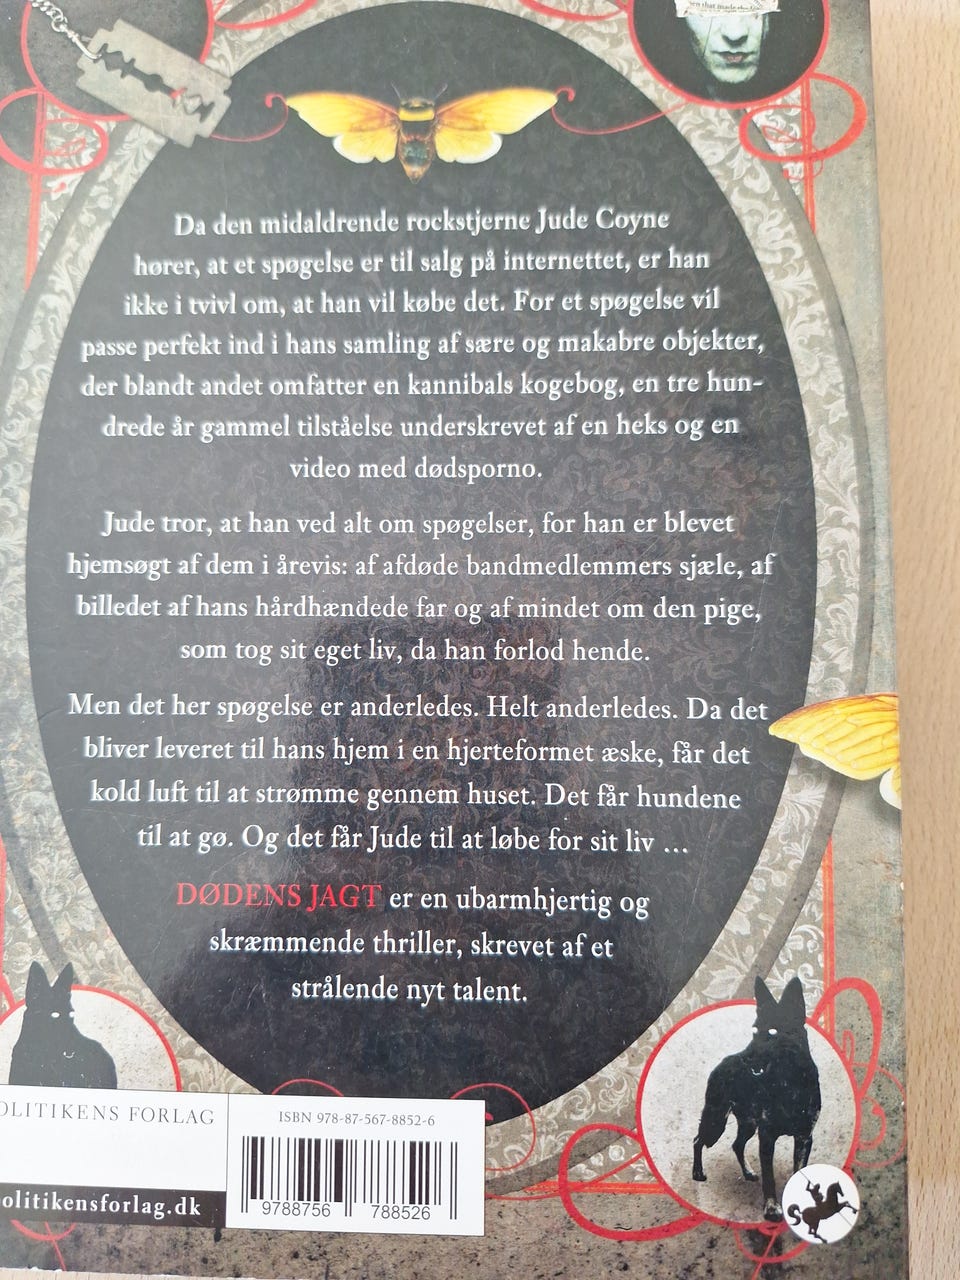 en that made the
Da den midaldrende rockstjerne Jude Coyne
hører, at et spøgelse er til salg på internettet, er han
ikke i tvivl om, at han vil købe det. For et spøgelse vil
passe perfekt ind i hans samling af sære og makabre objekter,
der blandt andet omfatter en kannibals kogebog, en tre hun-
drede år gammel tilståelse underskrevet af en heks og en
video med dødsporno.
Jude tror, at han ved alt om spøgelser, for han er blevet
hjemsøgt af dem i årevis: af afdøde bandmedlemmers sjæle, af
billedet af hans hårdhændede far og af mindet om den pige,
som tog sit eget liv, da han forlod hende.
Men det her spøgelse er anderledes. Helt anderledes. Da det
bliver leveret til hans hjem i en hjerteformet æske, får det
kold luft til at strømme gennem huset. Det får hundene
til at gø. Og det får Jude til at løbe for sit liv ...
DØDENS JAGT er en ubarmhjertig og
skræmmende thriller, skrevet af et
strålende nyt talent.
OLITIKENS FORLAG
olitikensforlag.dk
ISBN 978-87-567-8852-6
9788756 788526